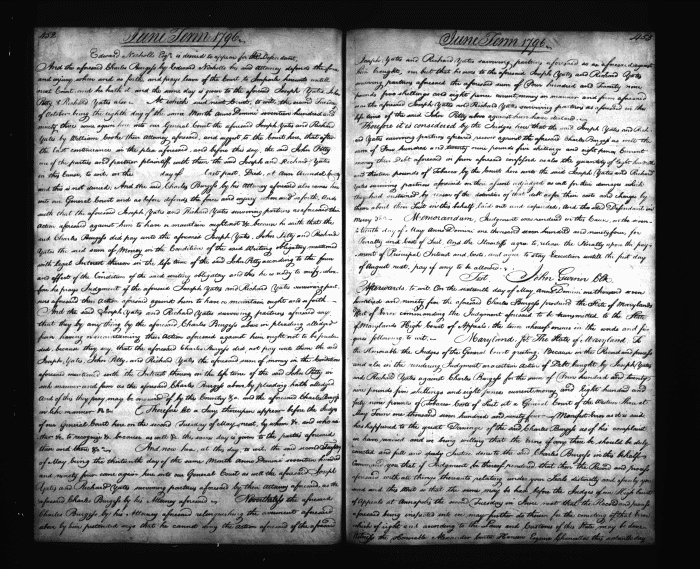 452
June Term 1796.
Edward Nicholls Esqr. is desired to appear for the Defendant.
And the aforesaid Charles Burgess by Edward Nicholls his said Attorney defends the force
and injury when and so forth, and prays leave of the Court to Imparle hereunto until
next Court, and he hath it, and the same day is given to the aforesaid Joseph Yates, John
Petty & Richard Yates also. At which said next Court, to wit, the second Tuesday
of October being the eighth day of the same Month Anno Domini seventeen hundred and
ninety three came again here into our General Court the aforesaid Joseph Yates and Richard
Yates by William Cooke their Attorney aforesaid, and suggest to the Court here, that after
the last continuance in the plea aforesaid, and before this day, the said John Petty
one of the parties and parties plaintiff with them the said Joseph and Richard Yates
in this Cause, to wit, on the day of last past, Died, at Ann Arundel County
and this is not denied. And the said Charles Burgess by his Attorney aforesaid also comes here
into our General Court and as before defends the force and injury when and so forth, And
saith that the aforesaid Joseph Yates and Richard Yates surviving partners as aforesaid their
Action aforesaid against him to have or maintain ought not &c. because he saith that the
said Charles Burgess did pay unto the aforesaid Joseph Yates, John Petty and Richard
Yates the said sum of Money in the Condition of the said Writing Obligatory mentioned
with Legal Interest thereon in the life time of the said John Petty according to the form
and effect of the Condition of the said writing obligatory and this he is ready to verify wherefore
he prays Judgment if the aforesaid Joseph Yates and Richard Yates surviving partners
aforesaid their Action aforesaid against him to have or maintain ought and so forth.
And the said Joseph Yates and Richard Yates surviving partners aforesaid say
that they by any thing by the aforesaid Charles Burgess above in pleading alledged
from having or maintaining their Action aforesaid against him ought not to be precluded,
because they say that the aforesaid Charles Burgess did not pay unto them the said
Joseph Yates, John Petty, and Richard Yates the aforesaid sum of money in the Condition
aforesaid mentioned with the Interest thereon in the life time of the said John Petty in
such manner and form as the aforesaid Charles Burgess above by pleading hath alledged
And of this they pray may be enquired of by the Country &c. and the aforesaid Charles Burgess
in like manner &c. Therefore let a Jury thereupon appear before the Judges
of our General Court here on the second Tuesday of May next, by whom &c. and who neither
&c. to recognize &c. because as well &c. the same day is given to the parties aforesaid
then and there &c. And now here, at this day, to wit, the second Tuesday
of May being the thirteenth day of the same Month Anno Domini seventeen hundred
and ninety four came again here into our General Court as well the aforesaid Joseph
Yates and Richard Yates surviving partners aforesaid by their Attorney aforesaid, as the
aforesaid Charles Burgess by his Attorney aforesaid. Nevertheless the aforesaid
Charles Burgess by his Attorney aforesaid relinquishing the averment aforesaid
above by him pretended says that he cannot deny the Action aforesaid of the aforesaid
June Term 1796.
453
Joseph Yates and Richard Yates surviving partners aforesaid as aforesaid against
him brought, nor but that he owes to the aforesaid Joseph Yates and Richard Yates
surviving partners aforesaid the aforesaid sum of Four hundred and Twenty nine
pounds five shillings and eight pence current money in manner and form aforesaid
as the aforesaid Joseph Yates and Richard Yates surviving partners as aforesaid in the
life time of the said John Petty above against him have declared.
Therefore it is considered by the Judges here that the said Joseph Yates and Richard
Yates surviving partners aforesaid recover against the aforesaid Charles Burgess as well the
sum of Four hundred and twenty nine pounds five shillings and eight pence Current
money their Debt aforesaid in form aforesaid confessed as also the quantity of Eight hundred
and thirteen pounds of Tobacco by the Court here unto the said Joseph Yates and Richard
Yates surviving partners aforesaid on their assent adjudged as well for their damages which
they had sustained by reason of the detention of that Debt as for their costs and charges by
them about their Suit in this behalf laid out and expended. And the said Defendant in
mercy &c. Memorandum Judgment was rendered in this Cause, on the seventeenth
day of May Anno Domini one thousand seven hundred and ninety four, for
Penalty and Costs of Suit. And the Plaintiffs agree to release the Penalty upon the payment
of Principal Interest and Costs, and agree to stay Execution until the first day
of August next, pay if any to be allowed.
Test John Gwinn Clk.
Afterwards to wit. On the sixteenth day of May Anno Domini one thousand seven
hundred and ninety five the aforesaid Charles Burgess produced the State of Maryland's
Writ of Error commanding the Judgment aforesaid to be transmitted to the State
of Maryland High Court of Appeals, the tenor whereof ensues in the words and figures
following to wit. Maryland, Sct. The State of Maryland To
the Honorable the Judges of the General Court greeting, Because in the Record and process
and also in the rendering Judgment in a certain Action of Debt brought by Joseph Yates
and Richard Yates against Charles Burgess for the sum of Four hundred and twenty
nine pounds five shillings and eight pence current money and Eight hundred and
forty nine pounds of Tobacco costs of Suit at a General Court of the Western Shore at
May Term one thousand seven hundred and ninety four Manifest Error as it is said
has happened to the great Damage of the said Charles Burgess as of his complaint
we have received and we being willing that the Error if any there be, should be duly
corrected and full and speedy Justice done to the said Charles Burgess in this behalf
Command you, that if Judgment be thereof rendered that then the Record and process
aforesaid with all things thereunto relating under your Seals distinctly and openly you send
and this Writ so that the same may be had before the Judges of our High Court
of Appeals at Annapolis the second Tuesday in June next that the Record and process
aforesaid being inspected we may further do thereon for the correcting of that Error
which of right and according to the Laws and Customs of this State may be done.
Witness the Honorable Alexander Contee Hanson Esquire Chancellor this sixteenth day